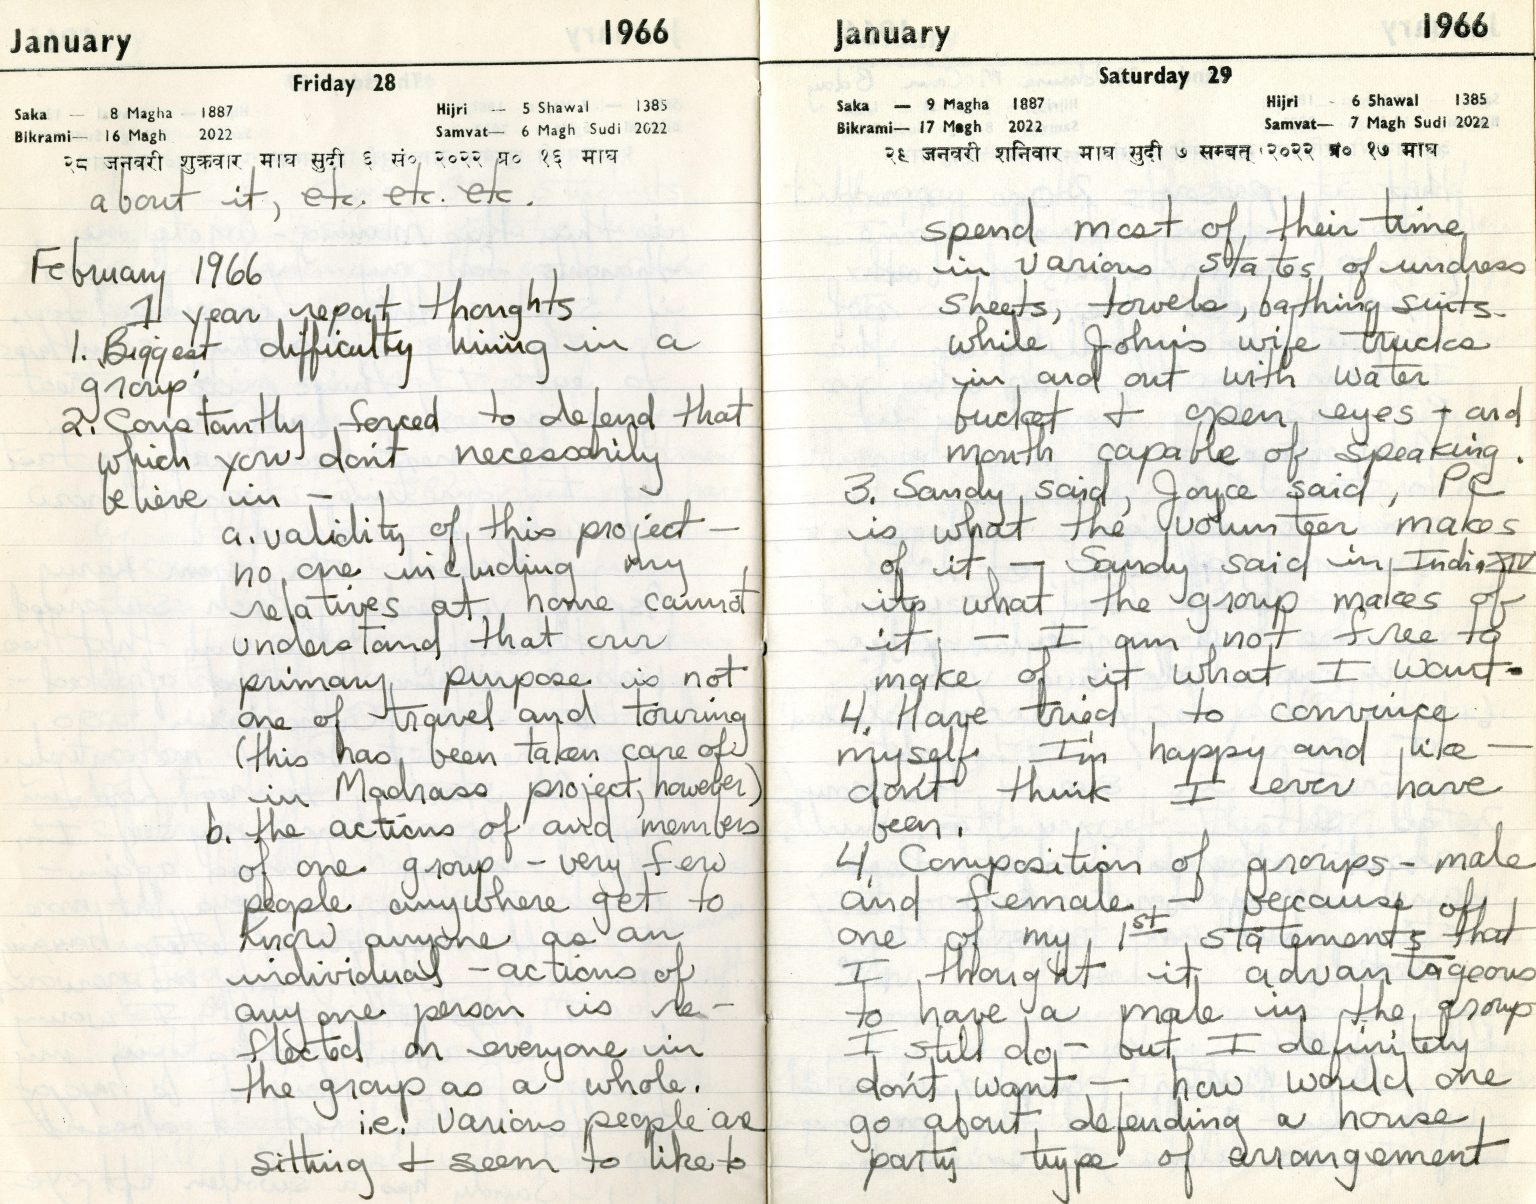 January 1966
Friday 28
Saka — 8 Magha 1887 Hijri - 5 Shawal 1385
Bikrami— 16 Magh 2022 Samvat— 6 Magh Sudi 2022
२८ जनवरी शुक्रवार माघ सुदी ६ सं०, २०२२ प्र० १६ माघ
about it, etc. etc. etc.
February 1966
1 year report thoughts
1. Biggest difficulty living in a
group!
2. Constantly forced to defend that
which you don't necessarily
believe in —
a. validity of this project —
no one including my
relatives at home cannot
understand that our
primary purpose is not
one of travel and touring
(this has been taken care of
in Madrass project, however)
b. the actions of and members
of one group - very few
people anywhere get to
know anyone as an
individual - actions of
any one person is re-
flected on everyone in
the group as a whole.
i.e. various people are
sitting & seem to like to
January 1966
Saturday 29
Saka — 9 Magha 1887 Hijri - 6 Shawal 1385
Bikrami— 17 Magh 2022 Samvat— 7 Magh Sudi 2022
२९ जनवरी शनिवार माघ सुदी ७ सम्बत् २०२२ प्र० १७ माघ
spend most of their time
in various states of undress
sheets, towels, bathing suits.
while John's wife trucks
in and out with water
bucket & open eyes + and
mouth capable of speaking.
3. Sandy said, Joyce said, PC
is what the volunteer makes
of it - Sandy said in India XIV
its what the group makes of
it. — I am not free to
make of it what I want.
4. Have tried to convince
myself I'm happy and like —
don't think I ever have
been.
4. Composition of groups - male
and female - because of
one of my 1st statements that
I thought it advantageous
to have a male in the group
I still do - but I definitely
don't want — how would one
go about defending a house
party type of arrangement